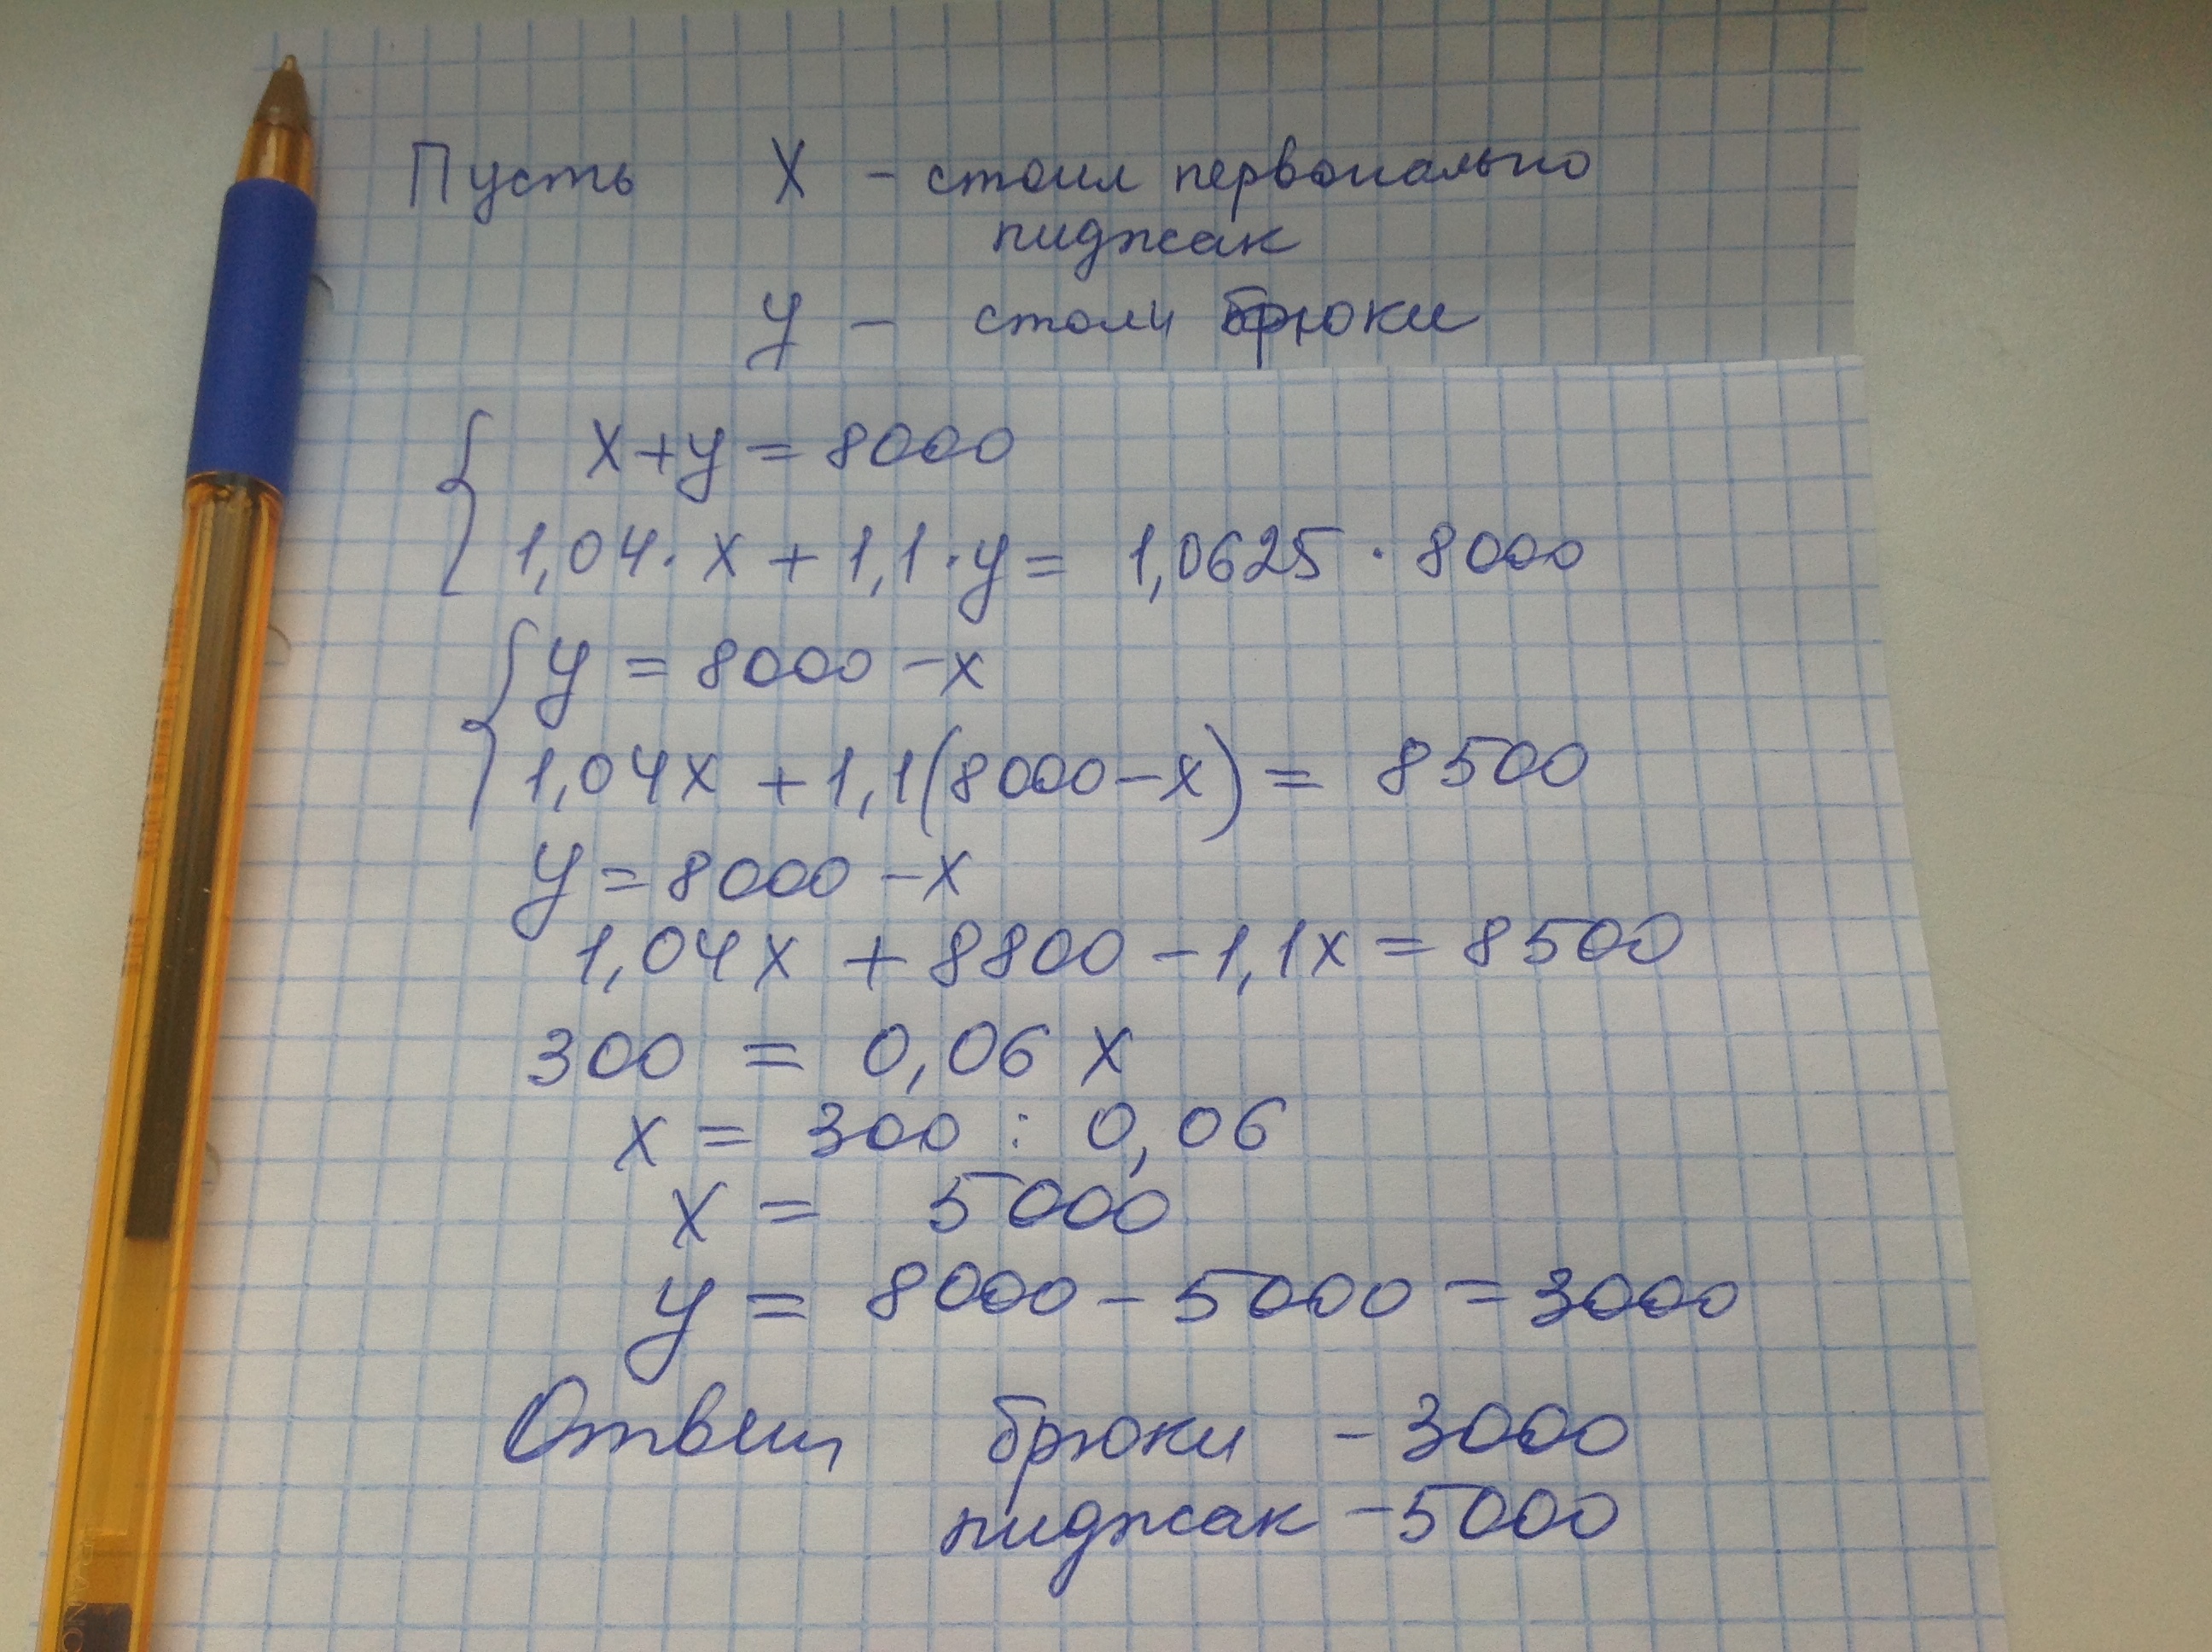 Пусть X – стоил первонально
пиджак
y – столи брюки
x+y = 8000
1,04·x + 1,1·y = 1,0625 · 8000
y = 8000 – x
1,04x + 1,1(8000–x) = 8500
y = 8000 – x
1,04x + 8800 – 1,1x = 8500
300 = 0,06 x
x = 300 : 0,06
x = 5000
y = 8000 – 5000 = 3000
Ответ брюки – 3000
пиджак – 5000